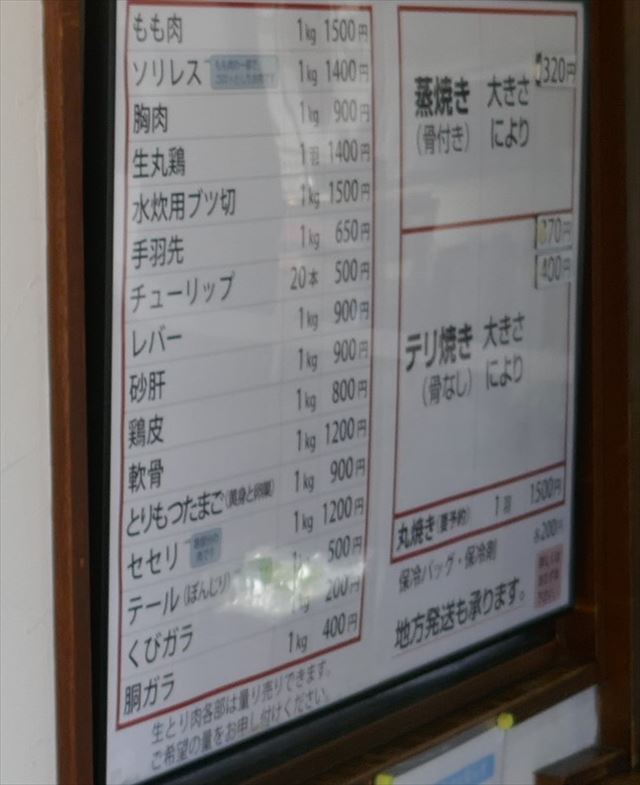 もも肉 1kg 1500円
ソリレス 1kg 1400円
胸肉 1kg 900円
生丸鶏 1羽 1400円
水炊用ブツ切 1kg 1500円
手羽先 1kg 650円
チューリップ 20本 500円
レバー 1kg 900円
砂肝 1kg 900円
鶏皮 1kg 800円
軟骨 1kg 1200円
とりもつたまご(黄身と卵巣) 1kg 900円
セセリ 1kg 1200円
テール(ぼんじり) 500円
くびガラ 200円
胴ガラ 1kg 400円
生とり肉各部は量り売りできます。
ご希望の量をお申し付けください。
蒸焼き 大きさ
(骨付き) により
320円
870円
テリ焼き 大きさ
(骨なし) により
400円
丸焼き(要予約) 1羽 1500円
保冷バッグ・保冷剤 各200円
地方発送も承ります。